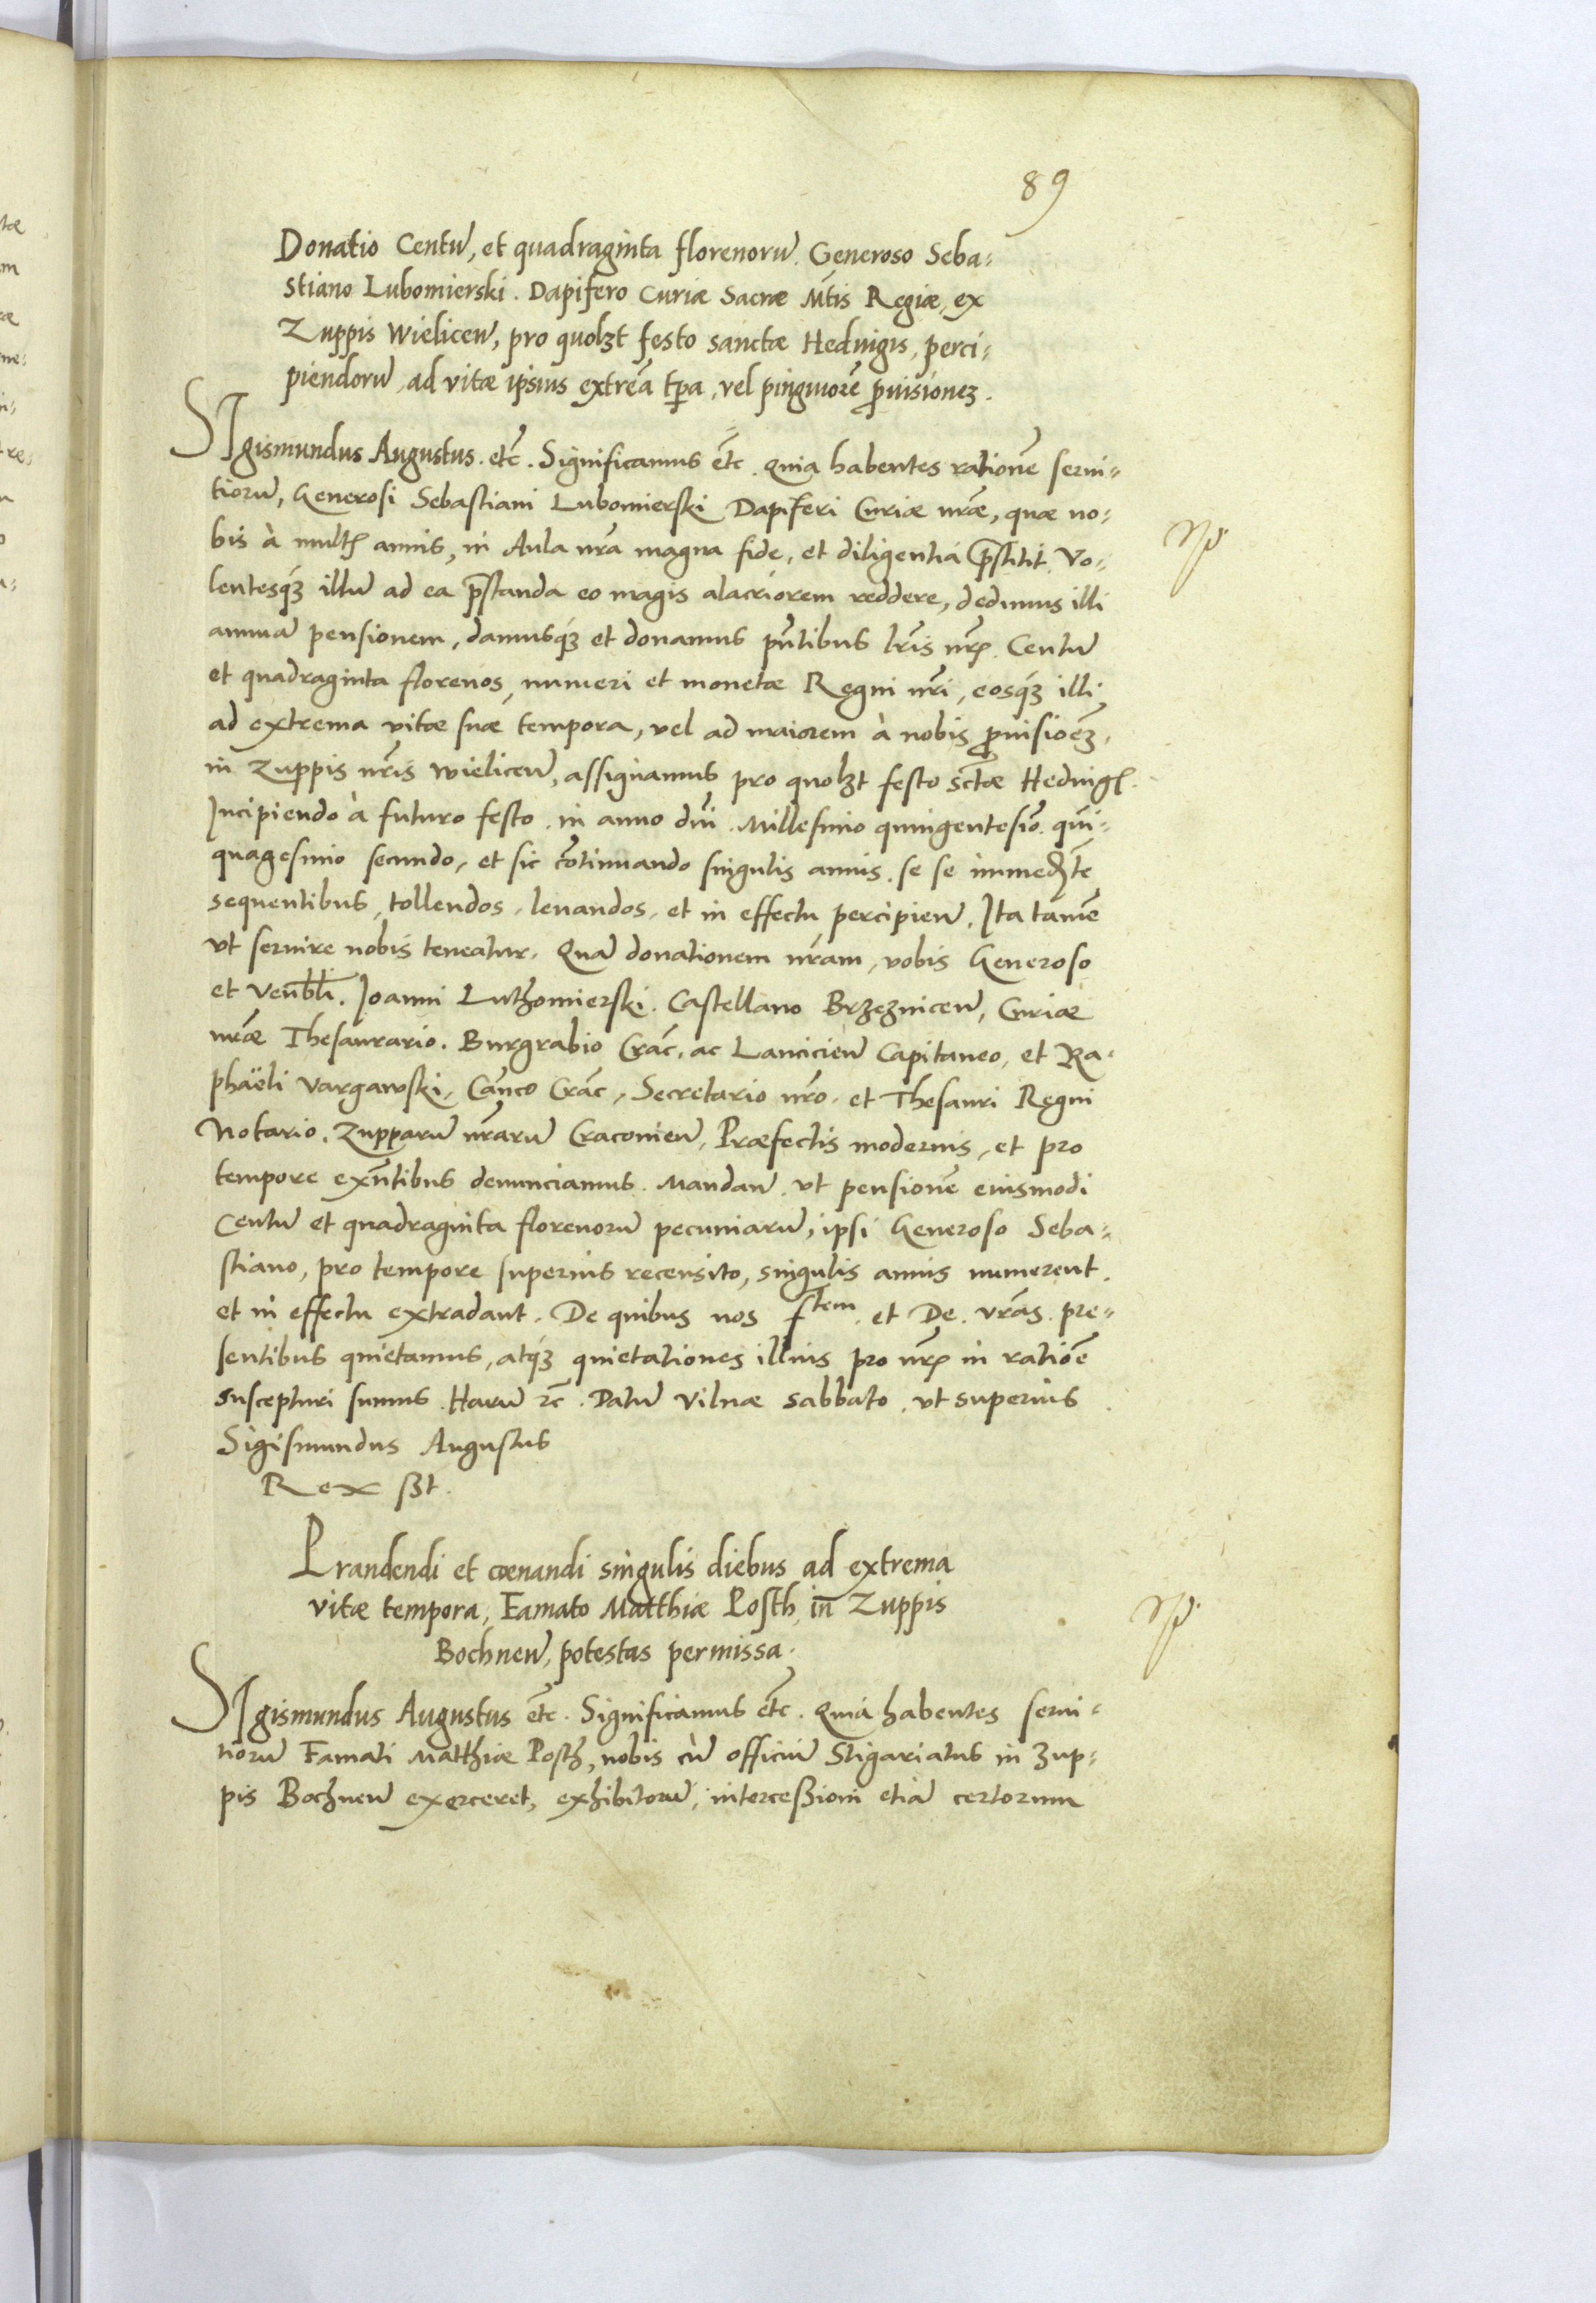 89
Donatio Centu, et quadraginta florenoru. Generoso Seba-
stiano Lubomierski. Dapifero Curiæ Sacræ Mtis Regiæ, ex
Zuppis Wielicen, pro quolzt festo sanctæ Heduigis, perci-
piendoru, ad vitæ ipsius extrēa tpa, vel pinguiorē puisionez.
SIgismundus Augustus. etc̃. Significamus etc̃. Quia habentes rationē serui-
tioru, Generosi Sebastiani Lubomierski Dapiferi Curiæ nræ, quæ no-
bis à mult annis, in Aula nra magna fide, et diligentia pstitit, Vo-
lentesq́ illu ad ea pstanda eo magis alacriorem reddere, dedimus illi
annua pensionem, damusq́ et donamus pñtibus lris nr̃. Centu
et quadraginta florenos, numeri et monetæ Regni nri, eosq́ illi
ad extrema vitæ suæ tempora, vel ad maiorem à nobis puisioēz.
in Zuppis nris Wielicen, assignamus pro quolzt festo sctæ Heduig.
Incipiendo à futuro festo. in anno dni. Millesimo quingentesiō. qui-
quagesimo secundo, et sic cōtinuando singulis annis. se se immedte
sequentibus, tollendos. leuandos. et in effectu percipien. Ita tamē
vt seruire nobis teneatur. Qua donationem nram, vobis Generoso
et Venbli. Joanni Luthomierski. Castellano Brzeznicen, Curiæ
nræ Thesaurario. Burgrabio Crac̃. ac Lancicien Capitaneo, et Ra-
phaëli Vargawski, Canco Crac̃, Secretario nro. et Thesauri Regni
Notario. Zupparu nraru Craconien, Præfectis modernis, et pro
tempore exñtibus denunciamus. Mandan. vt pensionē eiusmodi
Centu et quadraginta florenoru pecuniaru, ipsi Generoso Seba-
stiano, pro tempore superius recensito, singulis annis numerent.
et in effectu extradant. De quibus nos ftem. et De. vras. pre-
sentibus quietamus, atq́ quietationes illius pro nr̃ in ratioē
suscepturi sumus. Haru rc̃. Datu Vilnæ Sabbato. vt superius.
Sigismundus Augustus
Rex sst.
Prandendi et cœnandi singulis diebus ad extrema
vitæ tempora, Famato Matthiæ Posth, in Zuppis
Bochnen, potestas permissa.
SIgismundus Augustus etc̃. Significamus etc̃. Quia habentes serui-
tioru Famati Matthiæ Posth, nobis cu officiu Stigariatus in Zup-
pis Bochnen exerceret, exhibitoru, intercessioni etia certorum